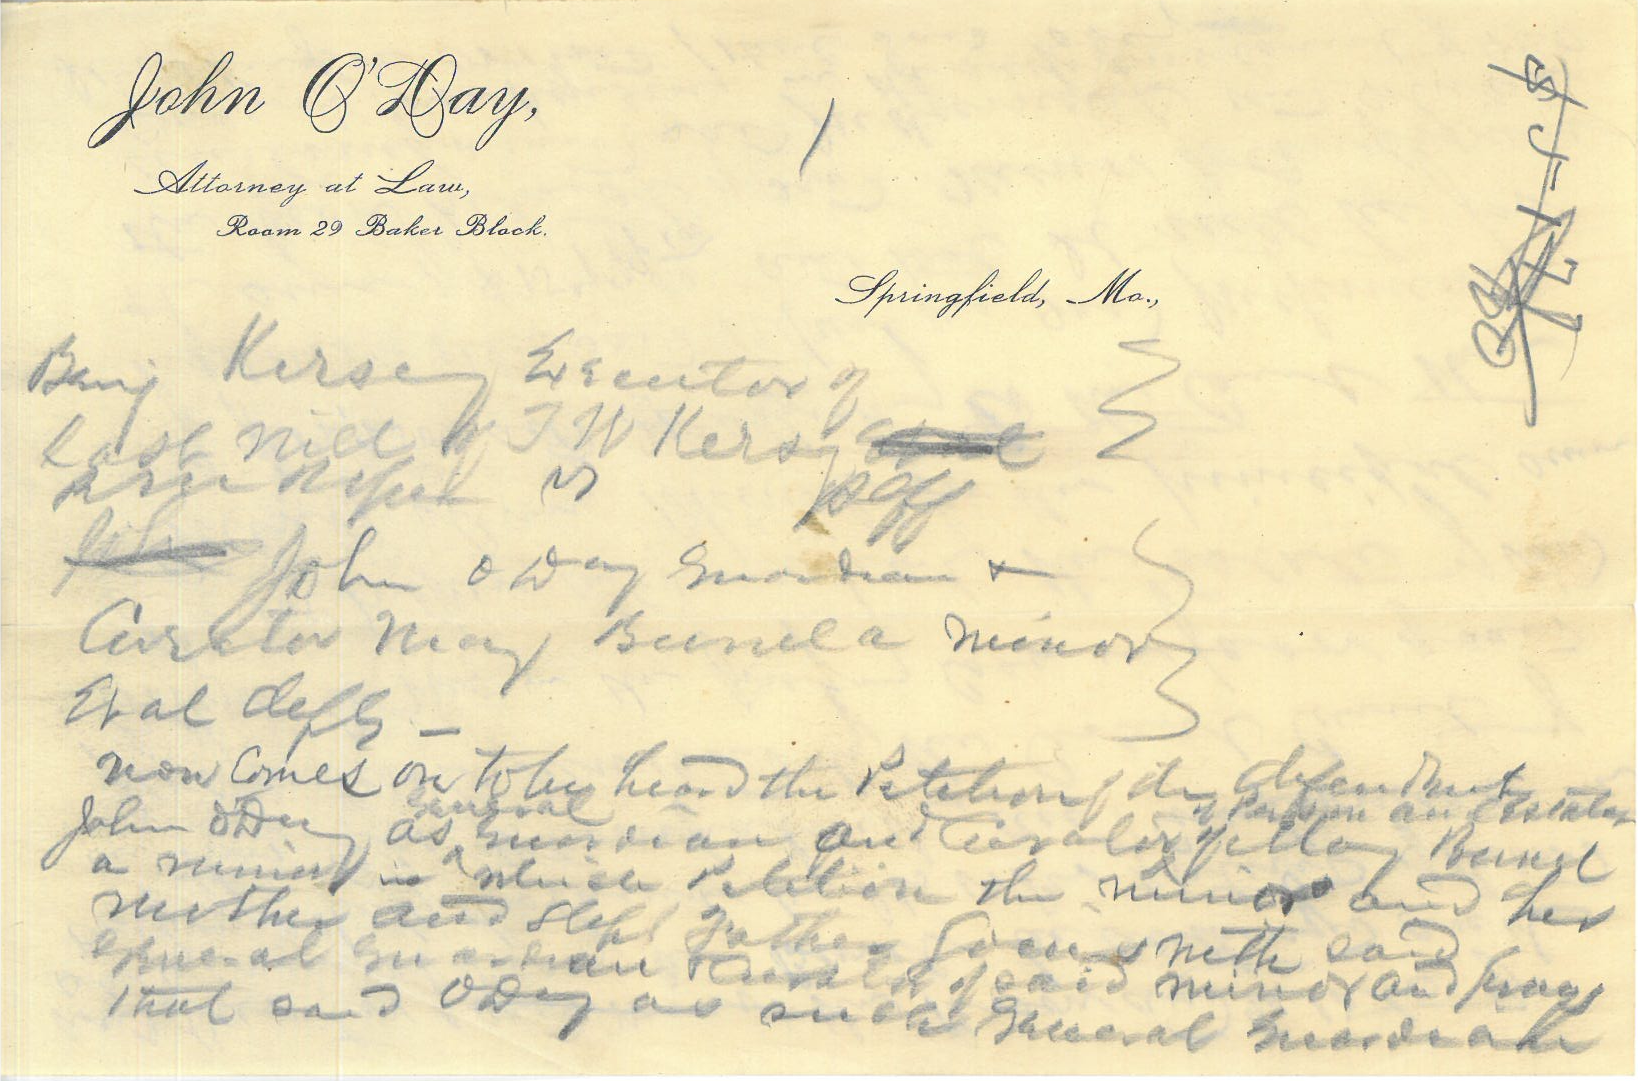 John O'Day,
Attorney at Law,
Room 29 Baker Block.
Springfield, Mo.,
Kersey Executor of
Last Will of T W Kersey
vs
John O Day Guardian +
Curator May a minor
Et al defts –
now Comes on to be heard the Petition of the defendant
John O'Day as general Guardian and Curator of Person and Estate of May
a minor in which Petition the minor and her
mother and step father Joins with said
general Guardian + Curator of said minor and prays
that said O Day as such General Guardian